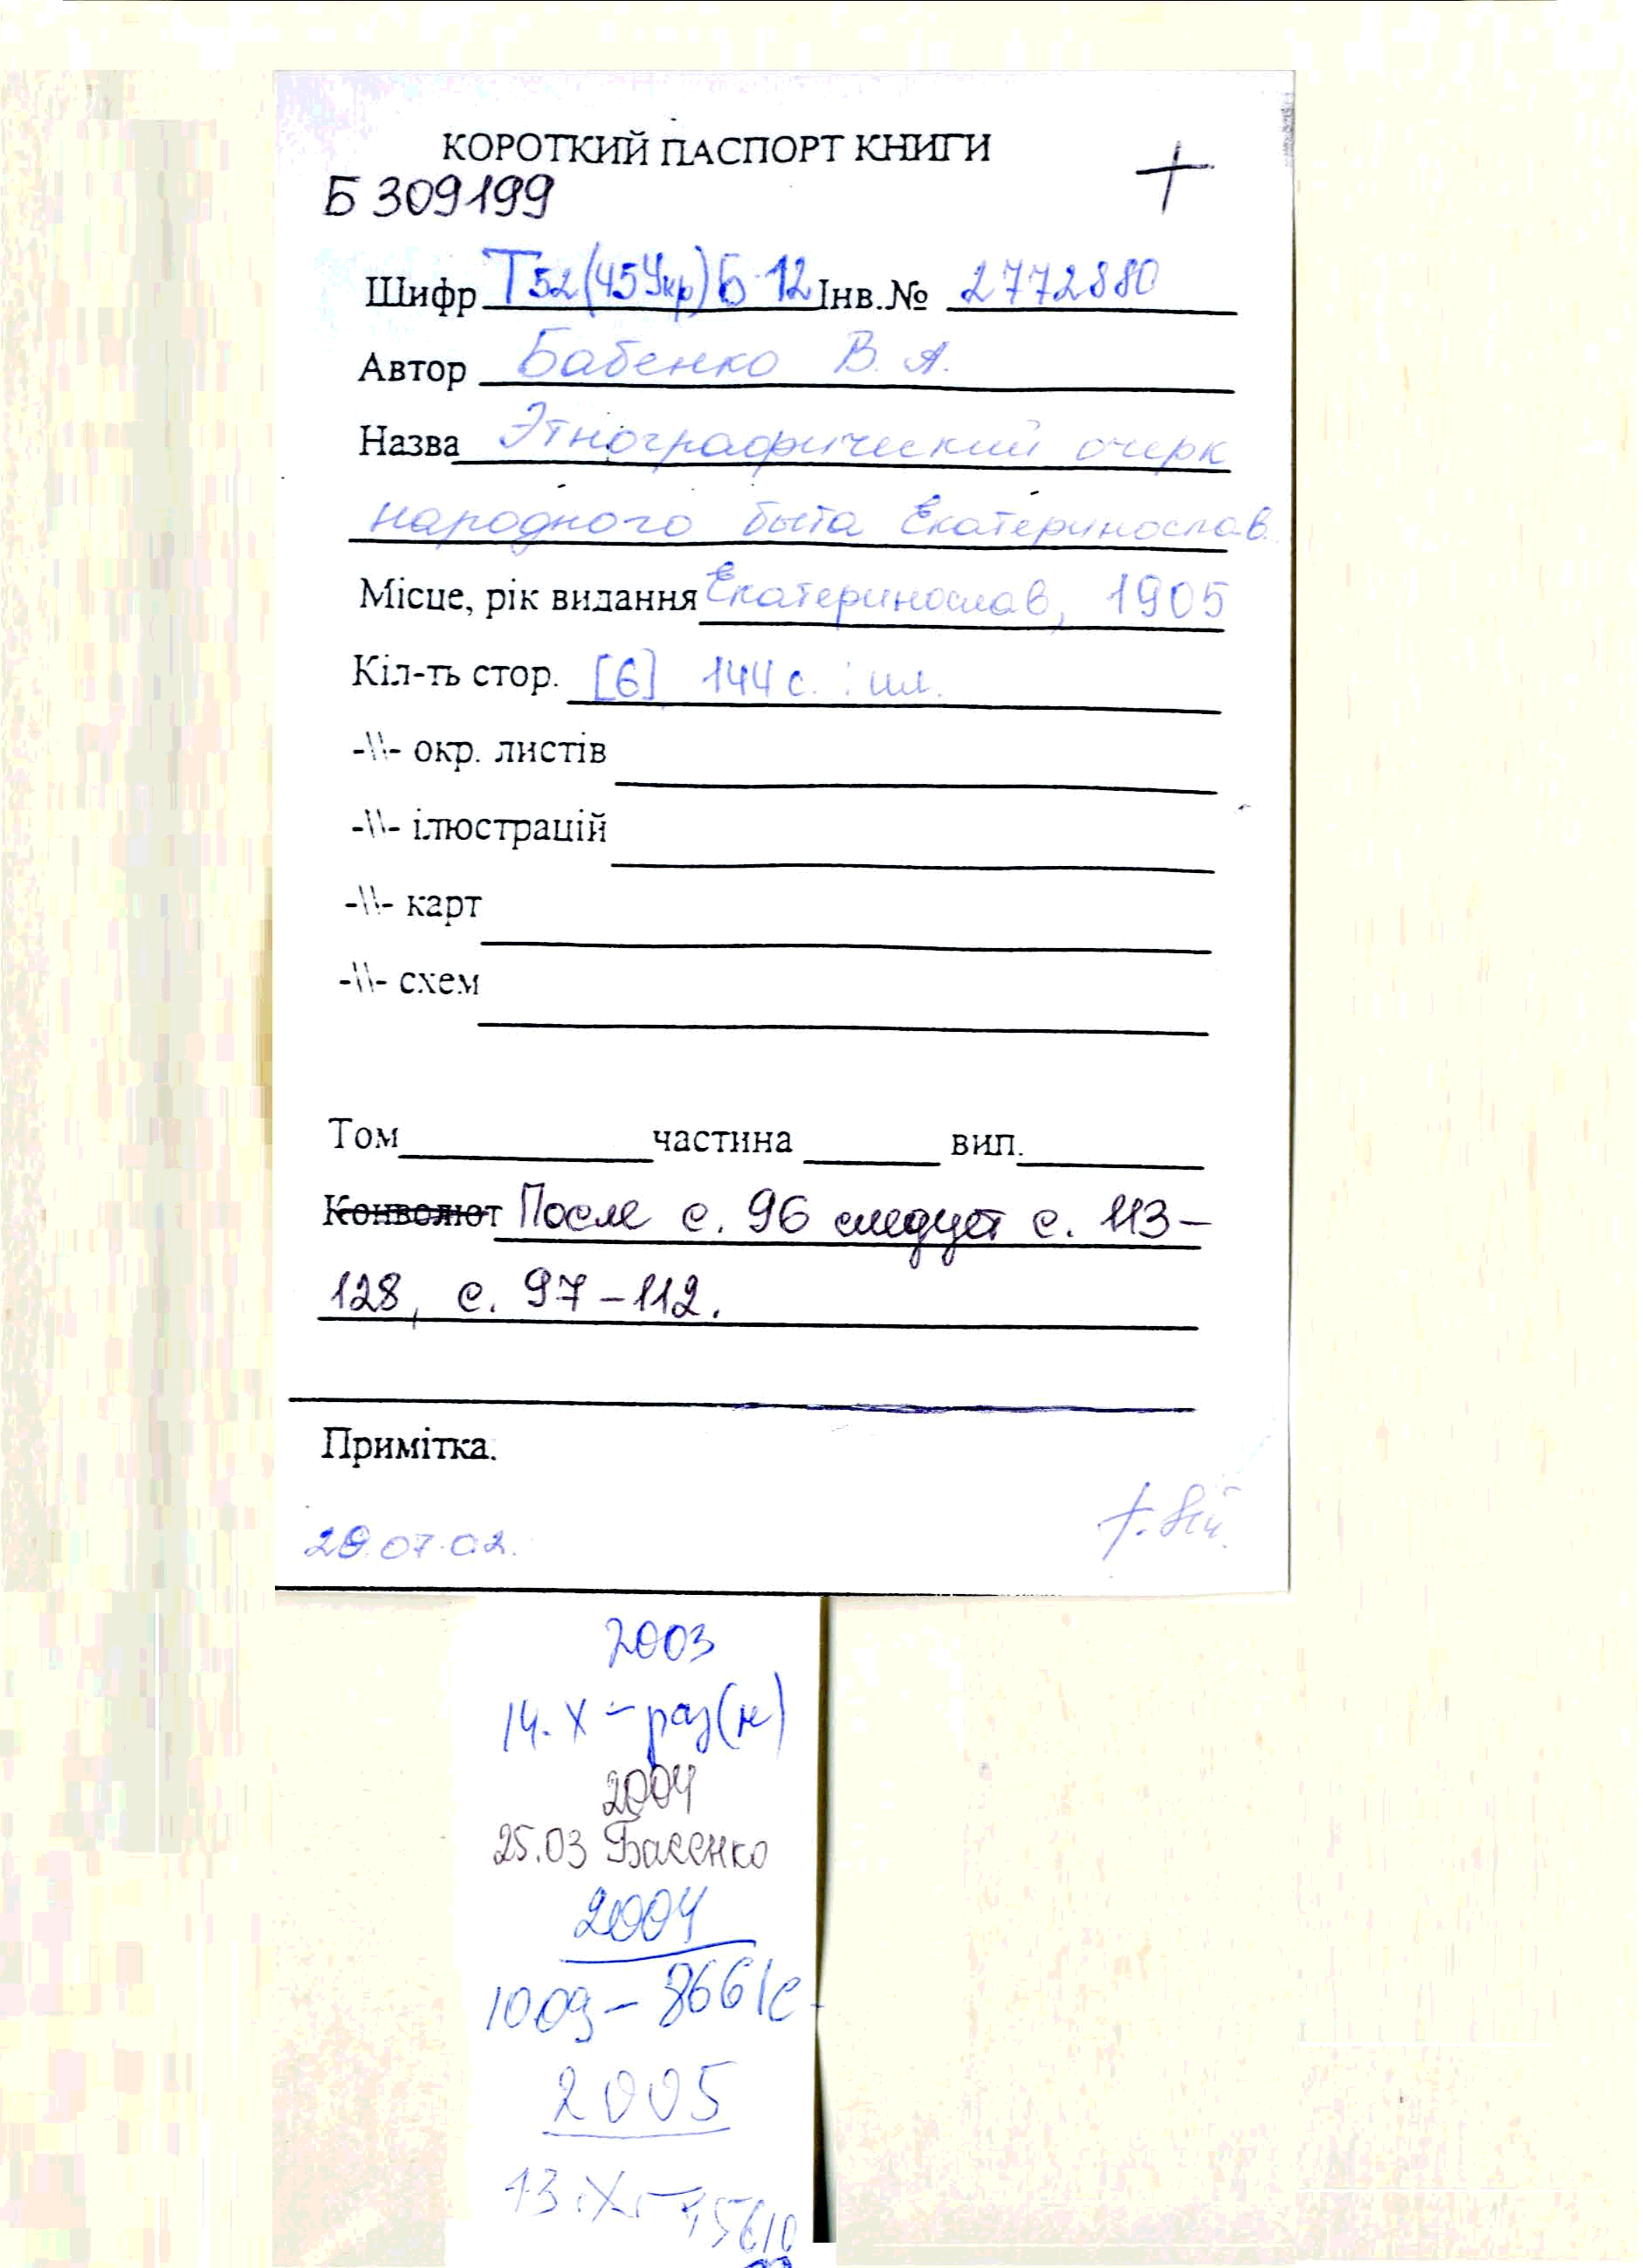 КОРОТКИЙ ПАСПОРТ КНИГИ
Б 309199
Шифр Т52(45Укр) Б-12 Інв.№ 2772880
Автор Бабенко В. А.
Назва Этнографический очерк
народного быта Екатеринослав.
Місце, рік видання Екатеринослав, 1905
Кіл-ть стор. [6] 144 с. : ил.
-\\- окр. листів
-\\- ілюстрацій
-\\- карт
-\\- схем
Том частина вип.
Конволют После с. 96 следует с. 113-
128, с. 97-112.
Примітка.
28.07.02.
2003
14.X - раз(н)
2004
25.03
2004
2005